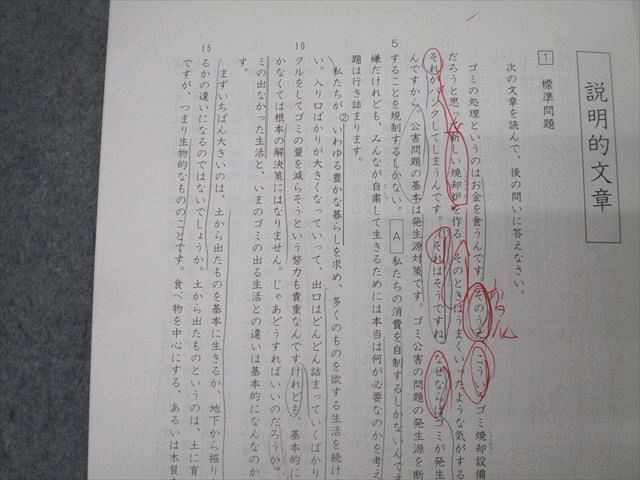 説明的文章
1 標準問題
次の文章を読んで、後の問いに答えなさい。
ゴミの処理というのはお金を食うんです。そのうえ、こういうゴミ焼却設備
だろうと思って新しい焼却炉を作る。そのときはうまくいったような気がする
それがパンクしてしまうんです。それはそうですね。なぜならばゴミが発生
んですから。公害問題の基本は発生源対策です。ゴミ公害の問題の発生源を断
5 することを規制するしかない。 A 私たちの消費を自制するしかないんです
嫌だけれども、みんなが自粛して生きるためには本当は何が必要なのかを考え
題は行き詰まります。
私たちが②いわゆる豊かな暮らしを求め、多くのものを欲する生活を続け
い。入り口ばかりが大きくなっていって、出口はどんどん詰まっていくばかり
10 クルをしてゴミの量を減らそうという努力も貴重なんですけれども、基本的に
かなくては根本の解決策にはなりません。じゃあどうすればいいのだろうか。
ミの出なかった生活と、いまのゴミの出る生活との違いは基本的になんなのか
す。
まずいちばん大きいのは、土から出たものを基本に生きるか、地下から掘り
15 るかの違いになるのではないでしょうか。土から出たものというのは、土に育
ですが、つまり生物的なもののことです。食べ物を中心にする、あるいは木質